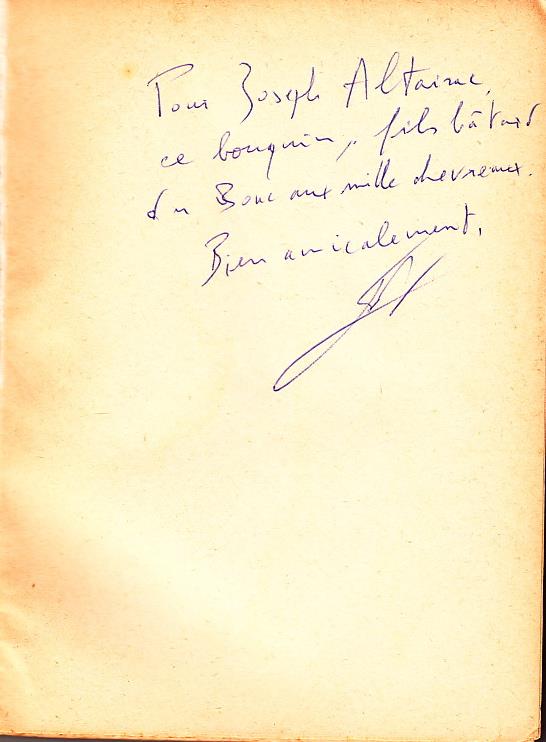 Pour Joseph Altairac,
ce bouquin, fils bâtard
du Bouc aux mille chevreaux.
Bien amicalement,